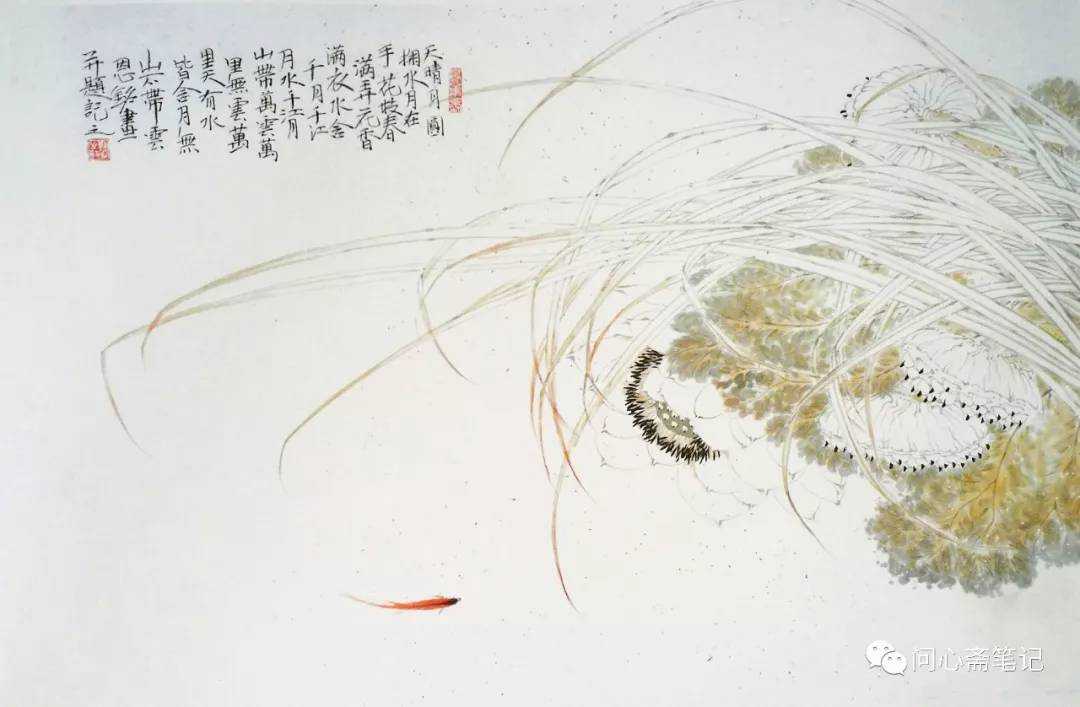 天晴月圓
掬水月在
手花枝春
满弄花香
满衣水含
千月千江
月水千江月
山帶萬雲萬
里無雲萬
里天有水
皆含月無
山不帶雲
恩銘畫
并題記之
问心斋笔记